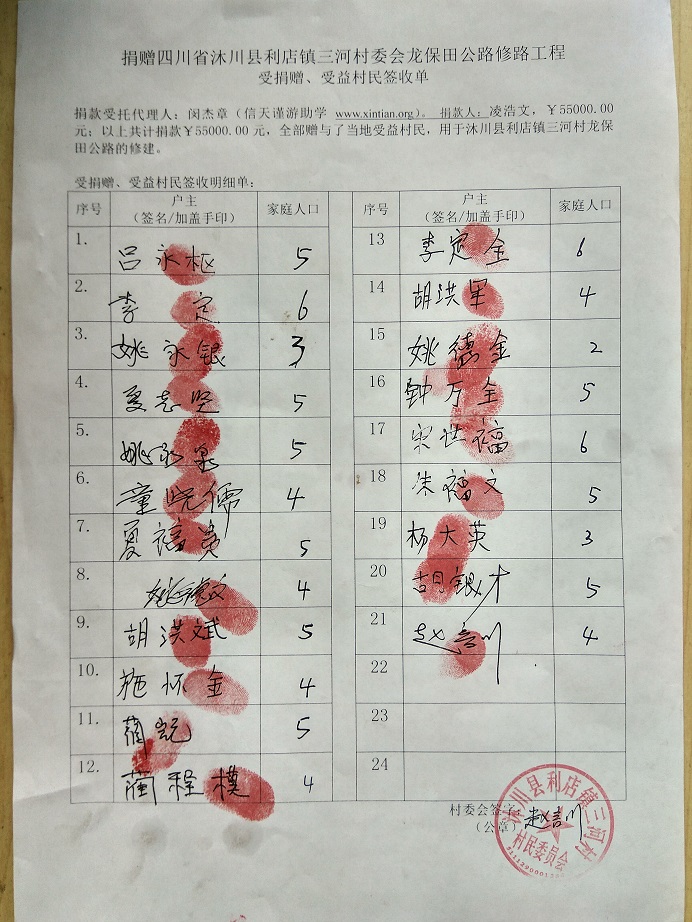 捐赠四川省沐川县利店镇三河村委会龙保田公路修路工程
受捐赠、受益村民签收单
捐款受托代理人：闵杰章（信天谨游助学 www.xintian.org）。 捐款人：凌浩文，￥55000.00
元；以上共计捐款￥55000.00 元，全部赠与了当地受益村民，用于沐川县利店镇三河村龙保
田公路的修建。
受捐赠、受益村民签收明细单：
序号 户主（签名/加盖手印） 家庭人口 序号 户主（签名/加盖手印） 家庭人口
1. 吕永枢 5 13 李定全 6
2. 李 定 6 14 胡洪军 4
3. 姚永银 3 15 姚德金 2
4. 夏志坚 5 16 钟万全 5
5. 姚永泉 5 17 宋世福 6
6. 童 儒 4 18 朱福文 5
7. 夏福贵 5 19 杨大英 3
8. 姚德文 4 20 胡银才 5
9. 胡洪斌 5 21 赵吉川 4
10. 施怀金 4 22
11. 5 23
12. 程模 4 24
村委会签字：赵吉川
（公章）
沐川县利店镇三河村
村民委员会